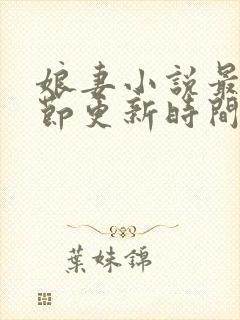 娘妻小說最
節更新時間
葉妹錦